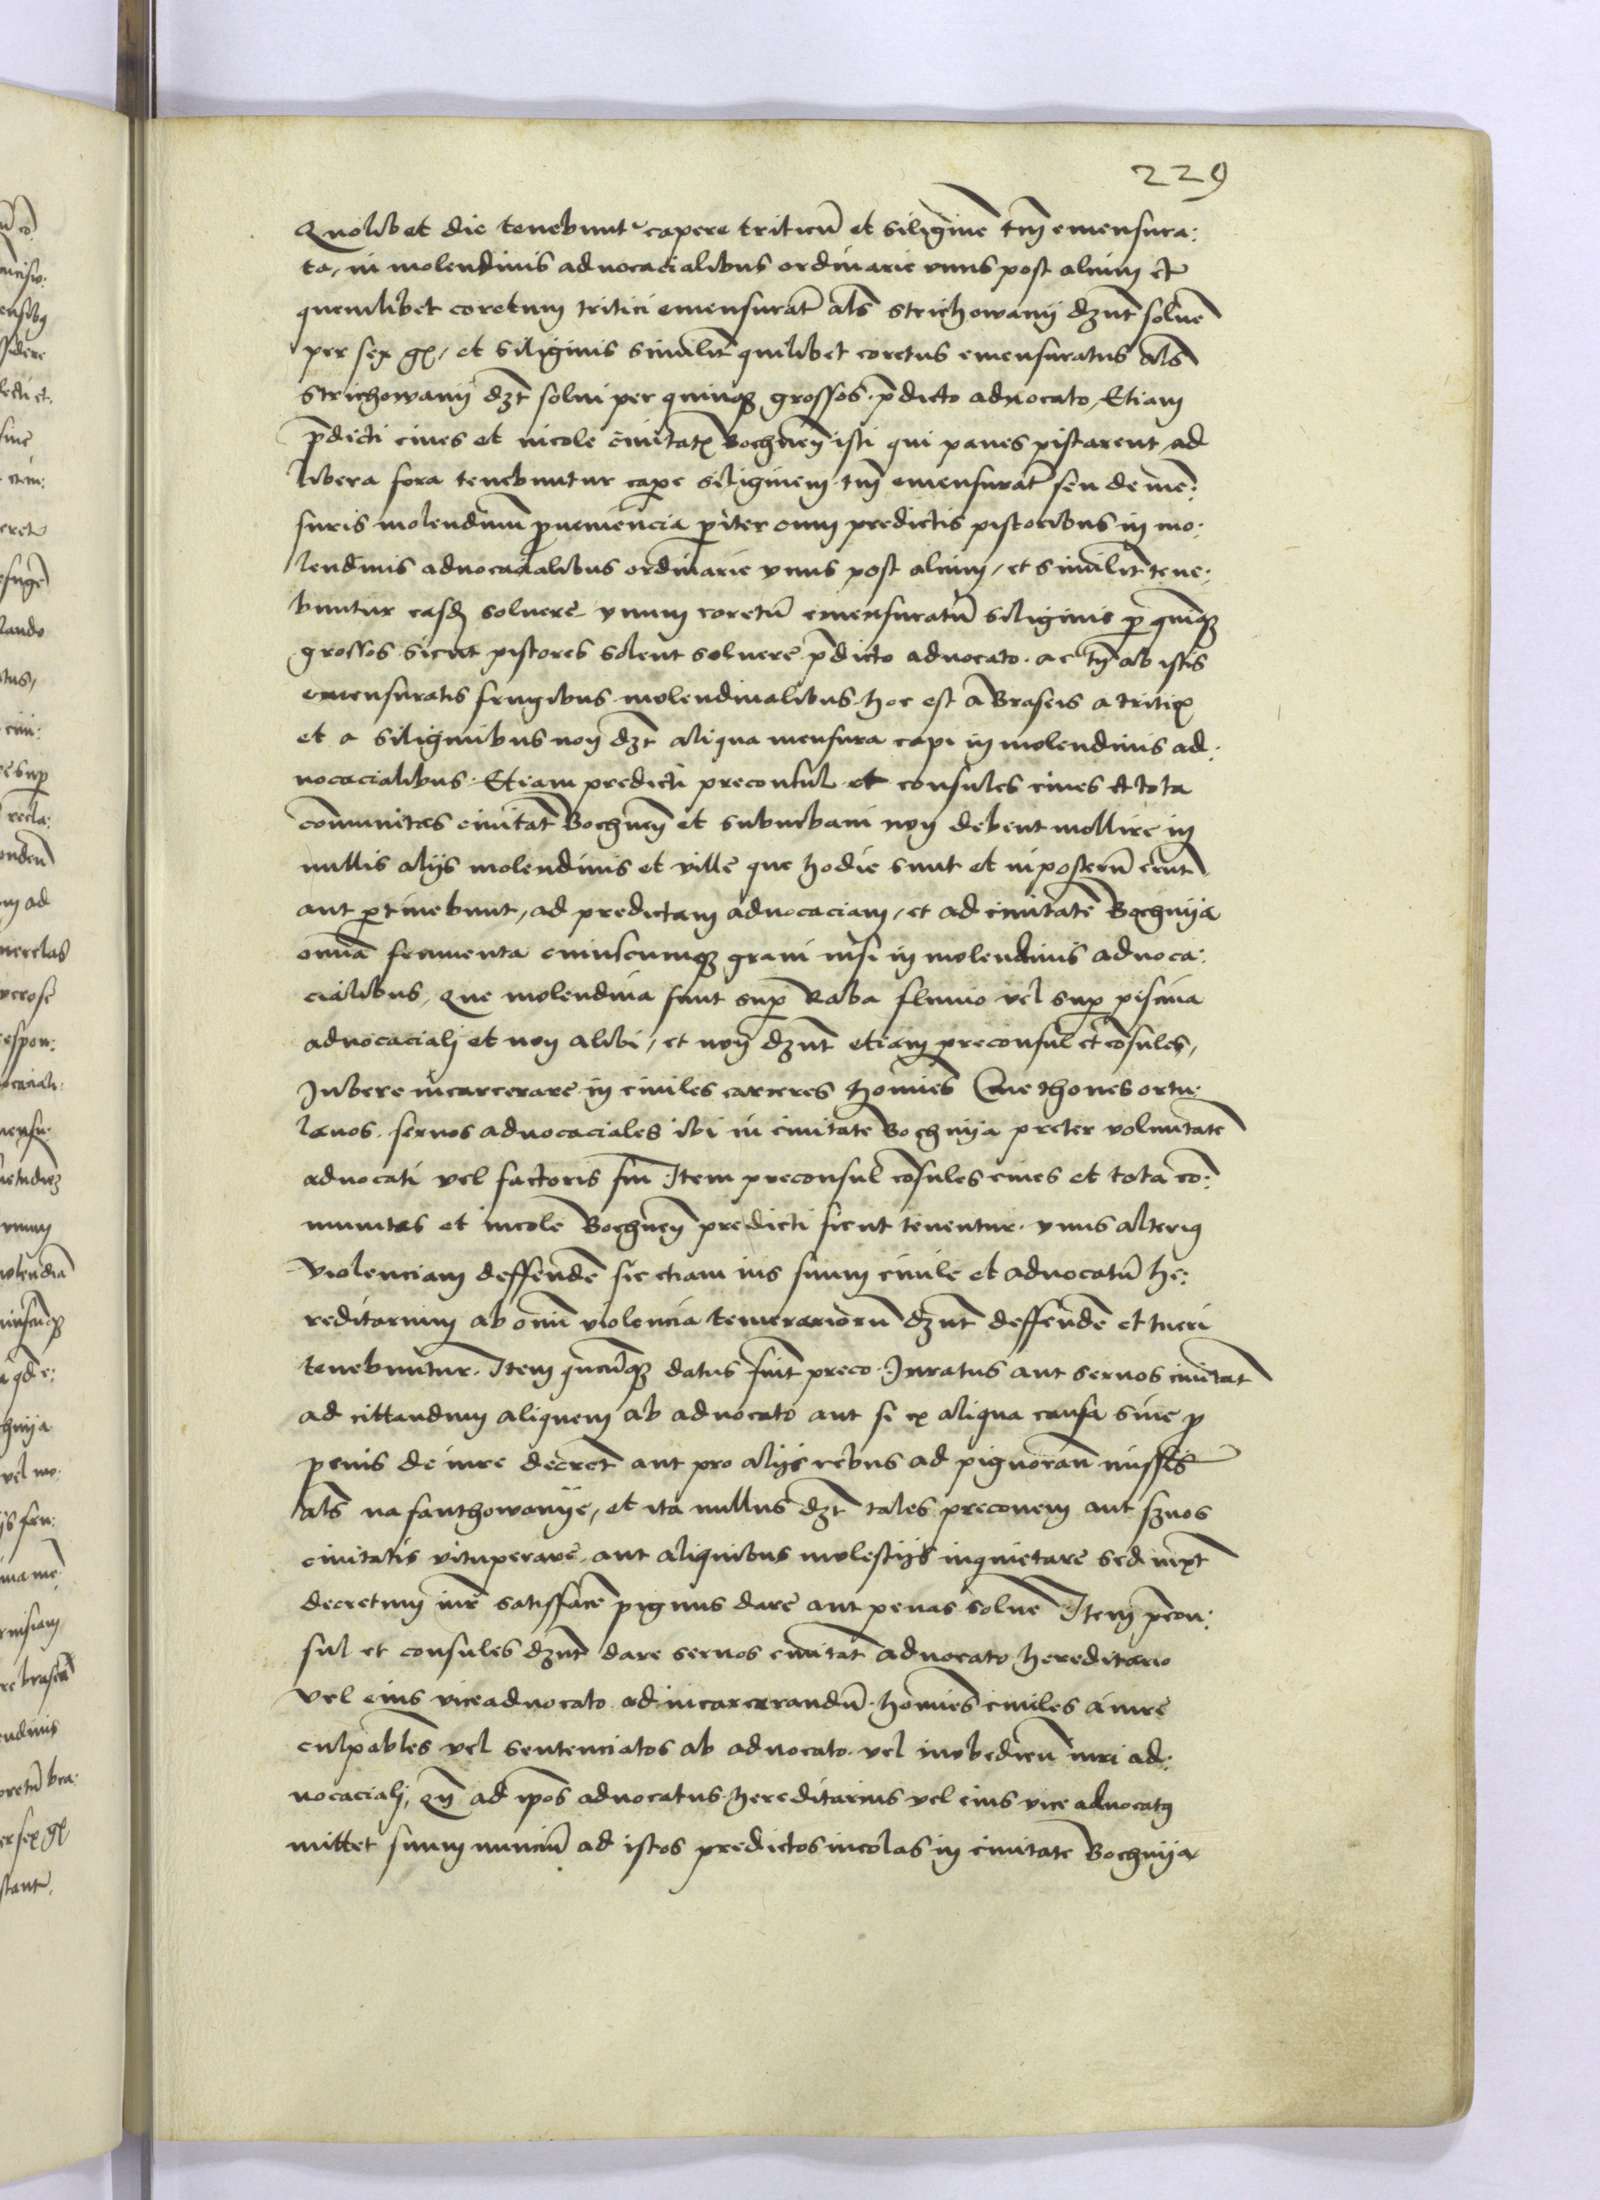 229
Quolibet die tenebunt˜ capere triticū et siliginē tm̄ emensura:
ta, in molendinis aduocacialibus ordinarie vnus post alium et
quemlibet coretum tritici emensurat̄ als̄ strichowanij dz̄nt soluē
per sex gͬ, et siliginis similit̄ quilibet coretus emensuratus als̄
strichowanij dz̄t solui per quinq̨ grossos p̄dicto aduocato, Etiam
p̄dicti ciues et incole ciuitatͬ Bochnen̄ isti qui panes pistarent ad
libera fora tenebuntur cape siliginem tm̄ emensurat̄ seu de mē:
suris molendinū ꝓueniencia pariter cum predictis pistoribus in mo:
lendinis aduocacialibus ordinarie vnus post alium, et similit̄ tene:
buntur easd̄ soluere vnum coretū emensuratū siliginis p quinq̨
grossos sicut pistores solent soluere p̄dicto aduocato. ac tm̄ ab istis
emensuratis frugibus molendinalibus hoc est a Braseis a triticͬ
et a siliginibus non dz̄t aliqua mensura capi in molendinis ad:
uocacialibus. Etiam predicti preconsul et consules ciues et tota
com̄unitas ciuitat̄ Bochnen̄ et suburbani non debent mollire in
nullis alijs molendinis et ville que hodie sunt et inposterū erūt
aut ptinebunt, ad predictam aduocaciam, et ad ciuitatē Bochnija
om̄ia frumenta cuiuscumq̨ grani nisi in molendinis aduoca:
cialibus, Que molendina sunt sup Raba fluuio vel sup piscina
aduocaciali et non alibi, et non dz̄nt etiam preconsul et cōsules,
Iubere incarcerare in ciuiles carceres homīes Cmethones ortu:
lanos. seruos aduocaciales ibi in ciuitate Bochnija preter voluntatē
aduocati vel factoris sui Item preconsul cōsules ciues et tota cō:
munitas et incole Bochnen̄ predicti sicut tenentur. vnus alterꝯ
violenciam deffendē sic etiam ius suum ciuile et aduocatū he:
reditarium ab om̄i violencia temerariorū dz̄nt deffendē et tueri
tenebuntur. Item qūcūq̨ datus fuit preco Iuratus aut seruos ciuitat̄
ad cittandum aliquem ab aduocato aut si ex aliqua causa siue ꝓ
penis de iure decret̄ aut pro alijs rebus ad pignorand̄ missus
als̄ na fanthowanije, et ita nullus dz̄t tales preconem aut s̄uos
ciuitatis vituperare aut aliquibus molestijs inquietare sed iuxt̄
decretum iurē satisffacē pignus dare aut penas soluē Item p̄con:
sul et consules dz̄nt dare seruos ciuitat̄ aduocato hereditario
vel eius viceaduocato ad incarcerandū. homīes ciuiles a iure
culpabiles vel sentenciatos ab aduocato vel inobedien̄ iuri ad:
uocaciali, Qn̄ ad ip̄os aduocatus hereditarius vel eius vice aduocatꝯ
mittet suum nunciū ad istos predictos incolas in ciuitate Bochnija